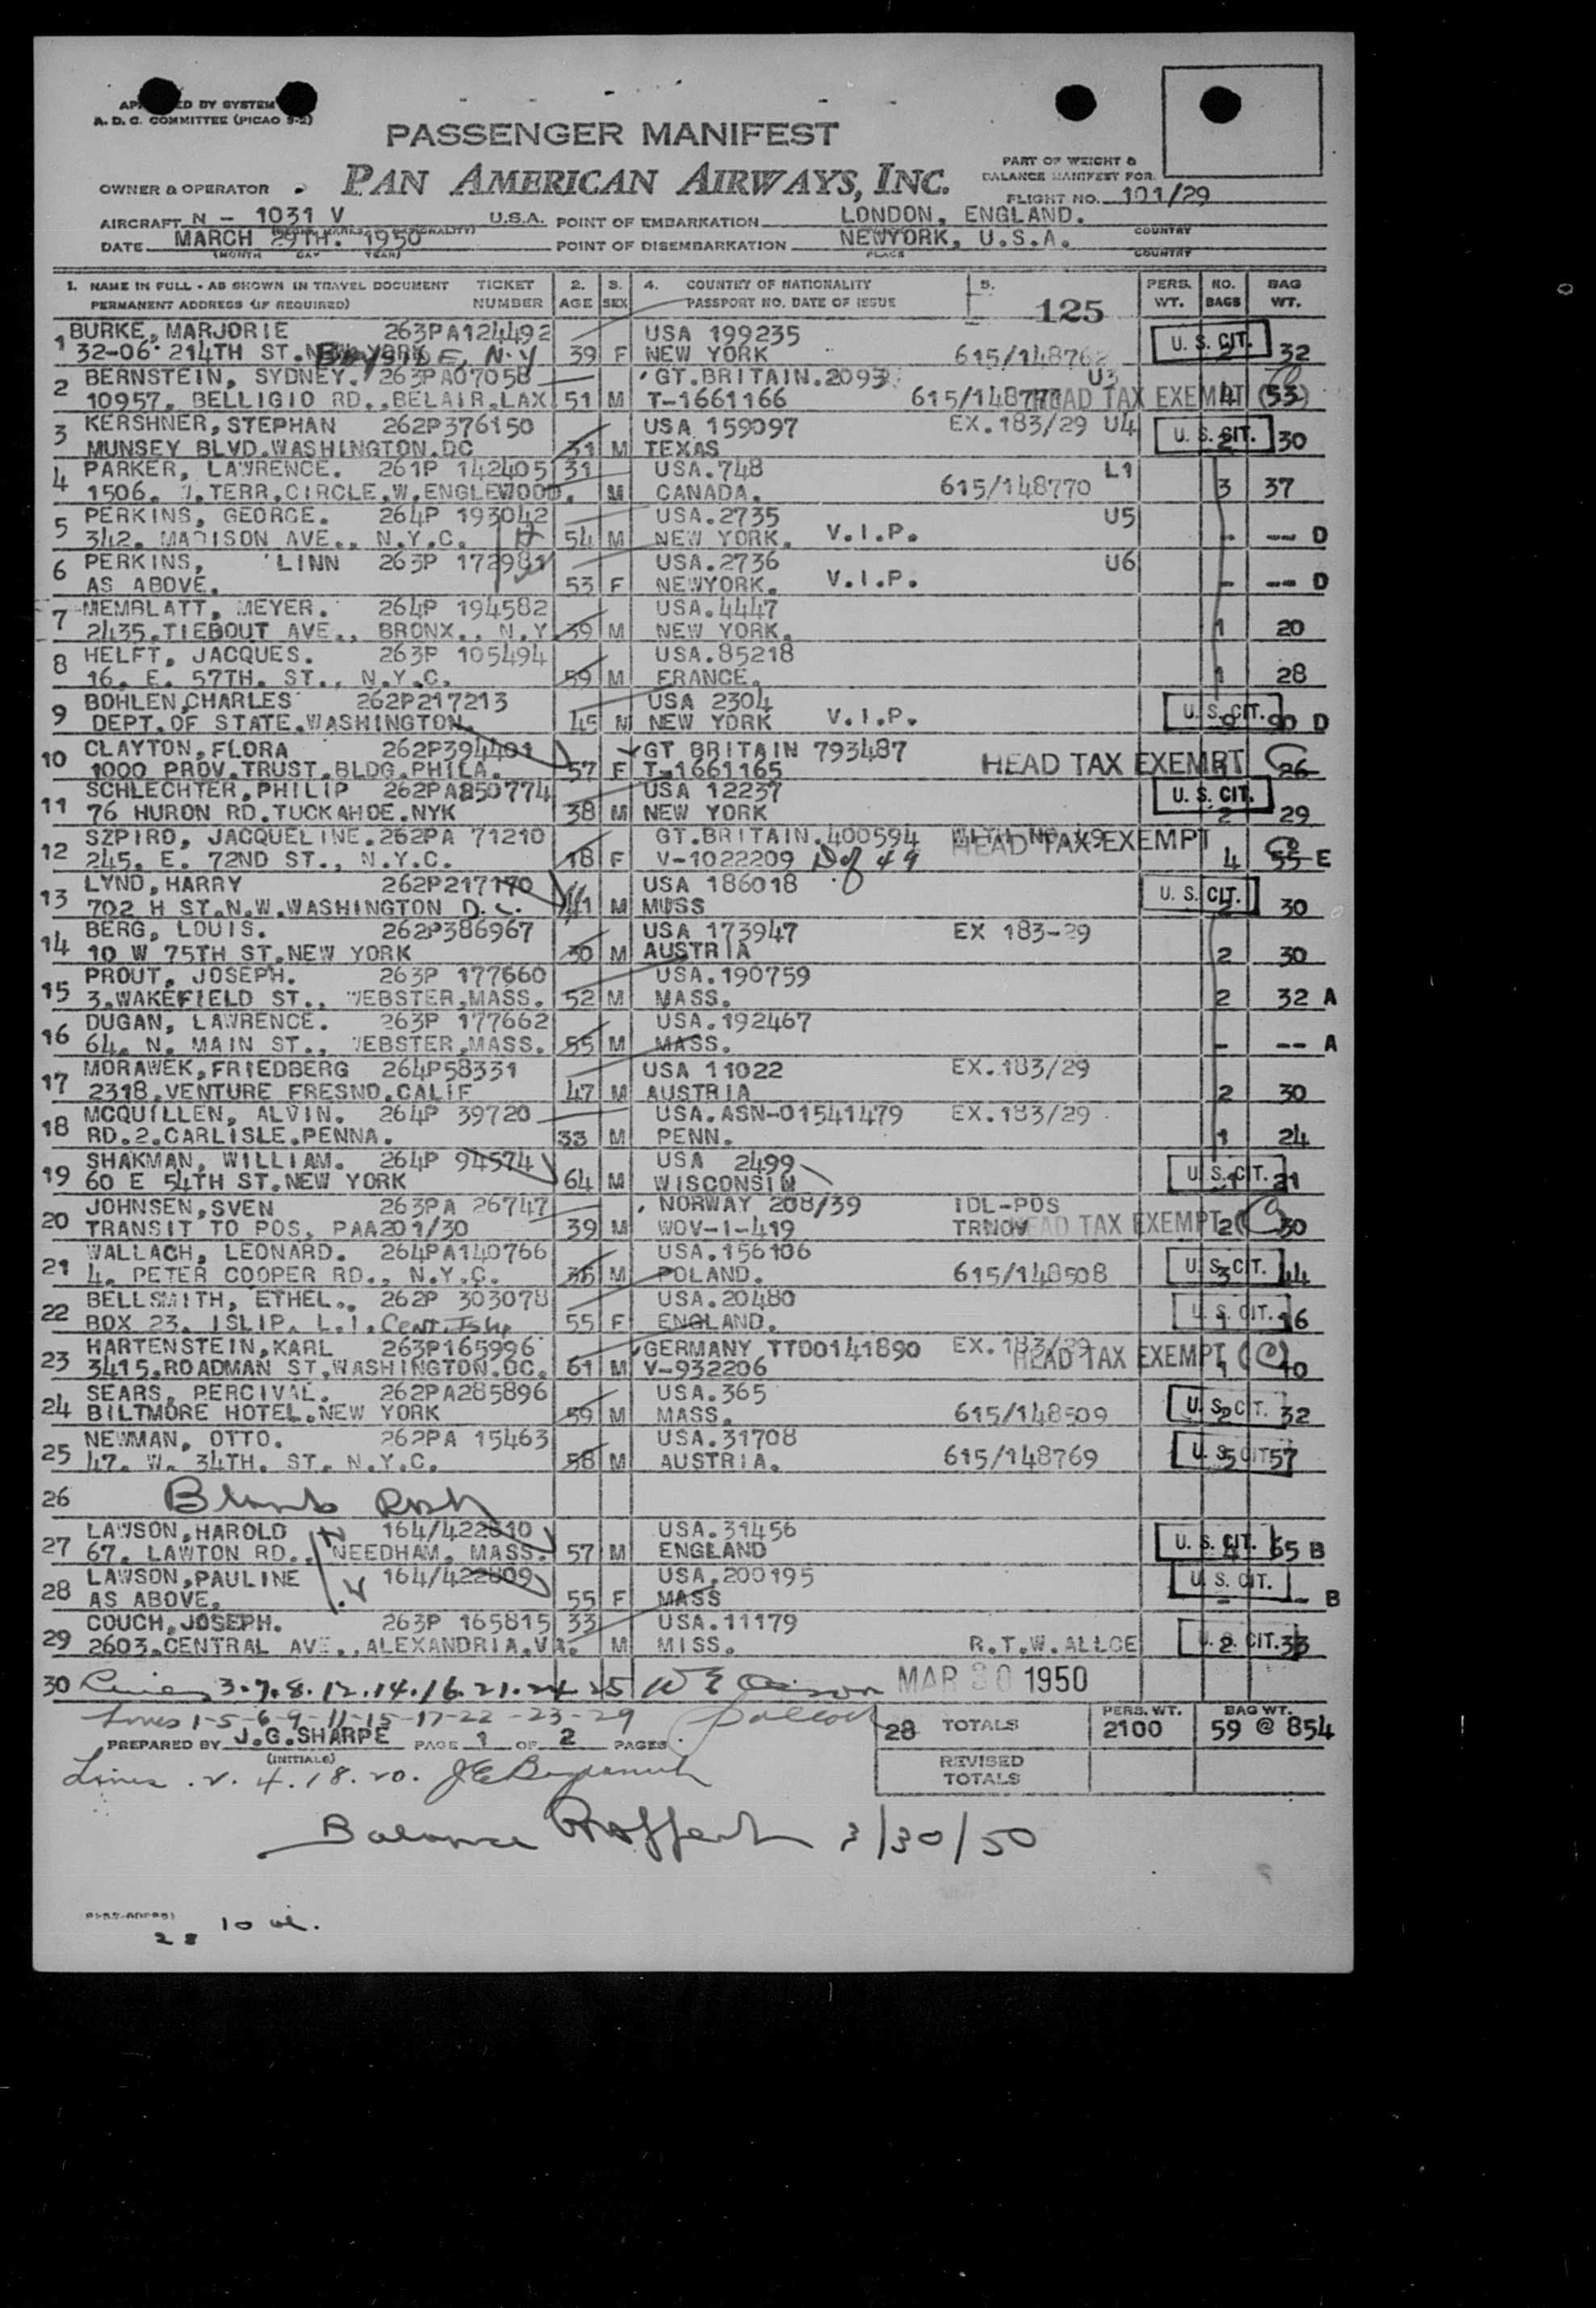 BY SYSTEM
A. D. C. COMMITTEE (PICAO S-2)
PASSENGER MANIFEST
OWNER & OPERATOR PAN AMERICAN AIRWAYS, INC.
PART OF WEIGHT &
BALANCE MANIFEST FOR
FLIGHT NO. 101/29
AIRCRAFT N - 1031 V U.S.A. POINT OF EMBARKATION LONDON, ENGLAND.
COUNTRY
DATE MARCH 29TH. 1950 POINT OF DISEMBARKATION NEWYORK, U.S.A.
(MONTH DAY YEAR) PLACE COUNTRY
1. NAME IN FULL - AS SHOWN IN TRAVEL DOCUMENT TICKET 2. 3. 4. COUNTRY OF NATIONALITY 5. PERS. NO. BAG
PERMANENT ADDRESS (IF REQUIRED) NUMBER AGE SEX PASSPORT NO. DATE OF ISSUE 125 WT. BAGS WT.
1 BURKE, MARJORIE 263PA124492 USA 199235 U. S. CIT.
32-06 214TH ST. BAYSIDE, N.Y 39 F NEW YORK 615/148762 32
2 BERNSTEIN, SYDNEY. 263PA07058 GT.BRITAIN.2093 U3
10957. BELLIGIO RD.,BELAIR.LAX 51 M T-1661166 HEAD TAX EXEMPT 4 (53)
3 KERSHNER, STEPHAN 262P376150 USA 159097 EX.183/29 U4 U. S. CIT.
MUNSEY BLVD.WASHINGTON.DC 31 M TEXAS 2 30
4 PARKER, LAWRENCE. 261P 142405 31 USA.748 L1
1506. TERR.CIRCLE.W.ENGLEWOOD. M CANADA. 615/148770 3 37
5 PERKINS, GEORGE. 264P 193042 USA.2735 U5
342. MADISON AVE., N.Y.C. 54 M NEW YORK. V.I.P. - -- D
6 PERKINS, LINN 263P 172981 USA.2736 U6
AS ABOVE. 53 F NEWYORK. V.I.P. - -- D
7 MEMBLATT, MEYER. 264P 194582 USA.4447
2435.TIEBOUT AVE., BRONX., N.Y 39 M NEW YORK. 1 20
8 HELFT, JACQUES. 263P 105494 USA.85218
16. E. 57TH. ST., N.Y.C. 59 M FRANCE. 1 28
9 BOHLEN,CHARLES 262P217213 USA 2304 U. S. CIT.
DEPT.OF STATE.WASHINGTON. 45 M NEW YORK V.I.P. 90 D
10 CLAYTON,FLORA 262P394401 GT BRITAIN 793487 HEAD TAX EXEMPT
1000 PROV.TRUST.BLDG.PHILA. 57 F T-1661165 26
11 SCHLECHTER,PHILIP 262PA850774 USA 12237 U. S. CIT.
76 HURON RD.TUCKAHOE.NYK 38 M NEW YORK 2 29
12 SZPIRO, JACQUELINE.262PA 71210 GT.BRITAIN.400594 HEAD TAX EXEMPT
245. E. 72ND ST., N.Y.C. 18 F V-1022209 D of 49 4 55 E
13 LYND,HARRY 262P217170 USA 186018 U. S. CIT.
702 H ST.N.W.WASHINGTON D.C. 41 M MUSS 2 30
14 BERG, LOUIS. 262P386967 USA 173947 EX 183-29
10 W 75TH ST.NEW YORK 30 M AUSTRIA 2 30
15 PROUT, JOSEPH. 263P 177660 USA.190759
3.WAKEFIELD ST., WEBSTER,MASS. 52 M MASS. 2 32 A
16 DUGAN, LAWRENCE. 263P 177662 USA.192467
64. N. MAIN ST., WEBSTER,MASS. 55 M MASS. - -- A
17 MORAWEK,FRIEDBERG 264P58331 USA 11022 EX.183/29
2318.VENTURE FRESNO.CALIF 47 M AUSTRIA 2 30
18 MCQUILLEN, ALVIN. 264P 39720 USA.ASN-01541479 EX.183/29
RD.2.CARLISLE.PENNA. 33 M PENN. 1 24
19 SHAKMAN, WILLIAM. 264P 94574 USA 2499 U. S. CIT.
60 E 54TH ST.NEW YORK 64 M WISCONSIN 1 21
20 JOHNSEN,SVEN 263PA 26747 NORWAY 208/39 IDL-POS
TRANSIT TO POS, PAA201/30 39 M WOV-1-419 HEAD TAX EXEMPT 2 30
21 WALLACH, LEONARD. 264PA140766 USA.156106 U. S. CIT.
4. PETER COOPER RD., N.Y.C. 36 M POLAND. 615/148508 3 44
22 BELLSMITH, ETHEL. 262P 303078 USA.20480 U. S. CIT.
BOX 23. ISLIP. L.I. Cent. Islip 55 F ENGLAND. 1 16
23 HARTENSTEIN,KARL 263P165996 GERMANY TTD0141890 EX.183/29
3415.ROADMAN ST.WASHINGTON.DC. 61 M V-932206 HEAD TAX EXEMPT 1 (C) 10
24 SEARS, PERCIVAL. 262PA285896 USA.365 U. S. CIT.
BILTMORE HOTEL.NEW YORK 59 M MASS. 615/148509 2 32
25 NEWMAN, OTTO. 262PA 15463 USA.31708 U. S. CIT
47. W. 34TH. ST. N.Y.C. 58 M AUSTRIA. 615/148769 5 57
26 Blank
27 LAWSON,HAROLD 164/422810 USA.31456 U. S. CIT.
67. LAWTON RD., NEEDHAM. MASS. 57 M ENGLAND 4 65 B
28 LAWSON,PAULINE 164/422809 USA.200195 U. S. CIT.
AS ABOVE. 55 F MASS - - B
29 COUCH,JOSEPH. 263P 165815 33 USA.11179
2603.CENTRAL AVE.,ALEXANDRIA.VA. M MISS. R.T.W.ALLCE U. S. CIT. 2 33
30 Lines 3.7.8.12.14.16.21.24 25 MAR 30 1950
Lines 1-5-6-9-11-15-17-22-23-29
PREPARED BY J.G.SHARPE PAGE 1 OF 2 PAGES.
(INITIALS)
28 TOTALS PERS. WT. 2100 BAG WT. 59 @ 854
REVISED
TOTALS
Lines . 2. 4. 18. 20.
Balance 3/30/50
28 10